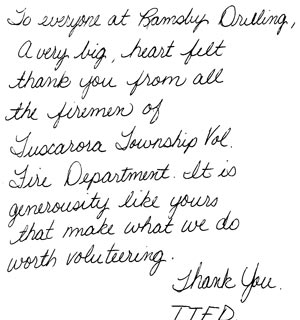 To everyone at Bamsby Drilling,
A very big, heart felt
thank you from all
the firemen of
Tuscarora Township Vol.
Fire Department. It is
generousity like yours
that make what we do
worth voluteering.
Thank You.
TTFD